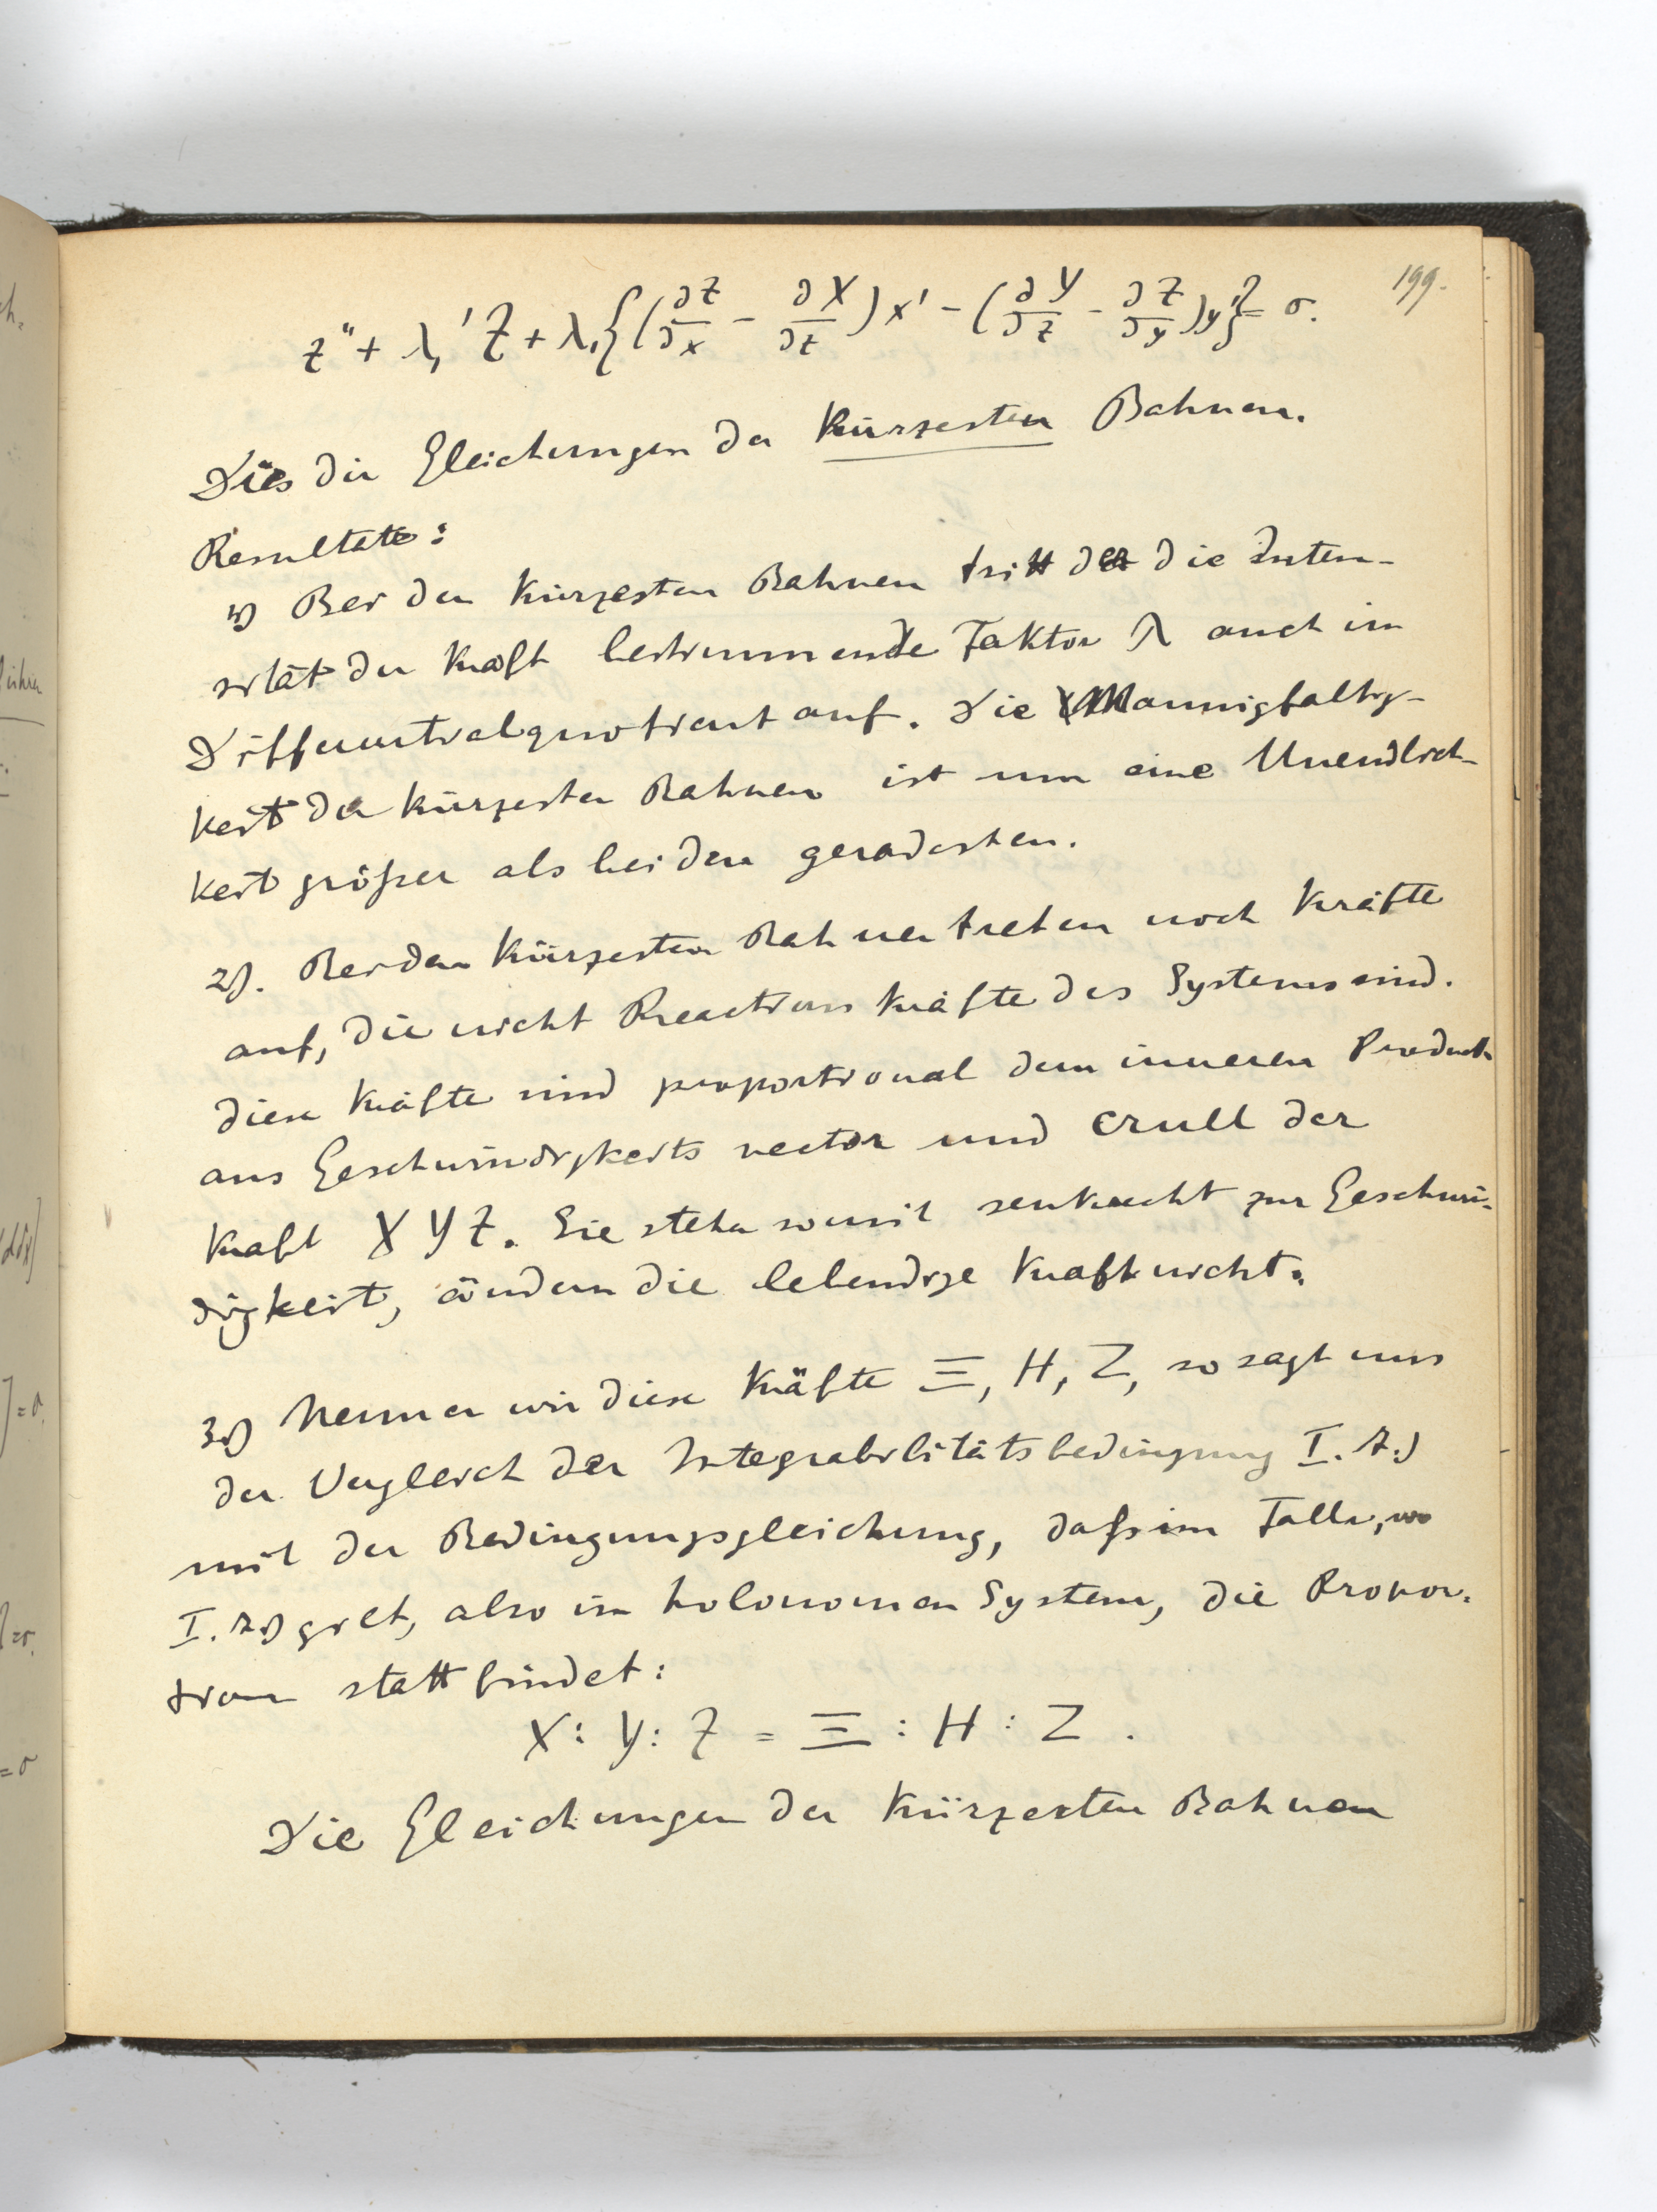 199.
z'' + λ₁' Z + λ₁{(∂Z/∂x - ∂X/∂z) x' - (∂Y/∂z - ∂Z/∂y) y'} = 0.
Dies die Gleichungen der kürzesten Bahnen.
Resultate:
1) Bei den kürzesten Bahnen tritt der die Inten-
sität der Kraft bestimmende Faktor λ auch im
Differentialquotient auf. Die Mannigfaltig-
keit der kürzesten Bahnen ist um eine Unendlich-
keit größer als bei den geradesten.
2). Bei den kürzesten Bahnen treten noch Kräfte
auf, die nicht Reactionskräfte des Systems sind.
diese Kräfte sind proportional dem inneren Product
aus Geschwindigkeits vector und Crull der
Kraft X Y Z. Sie stehn somit senkrecht zur Geschwin-
digkeit, ändern die lebendige Kraft nicht.
3.) Nennen wir diese Kräfte Ξ, H, Z, so sagt uns
der Vergleich der Integrabilitätsbedingung I. 7.)
mit der Bedingungsgleichung, daß im Falle, wo
I. 7.) gilt, also im holonomen System, die Propor-
tion statt findet:
X : Y : Z = Ξ : H : Z .
Die Gleichungen der kürzesten Bahnen